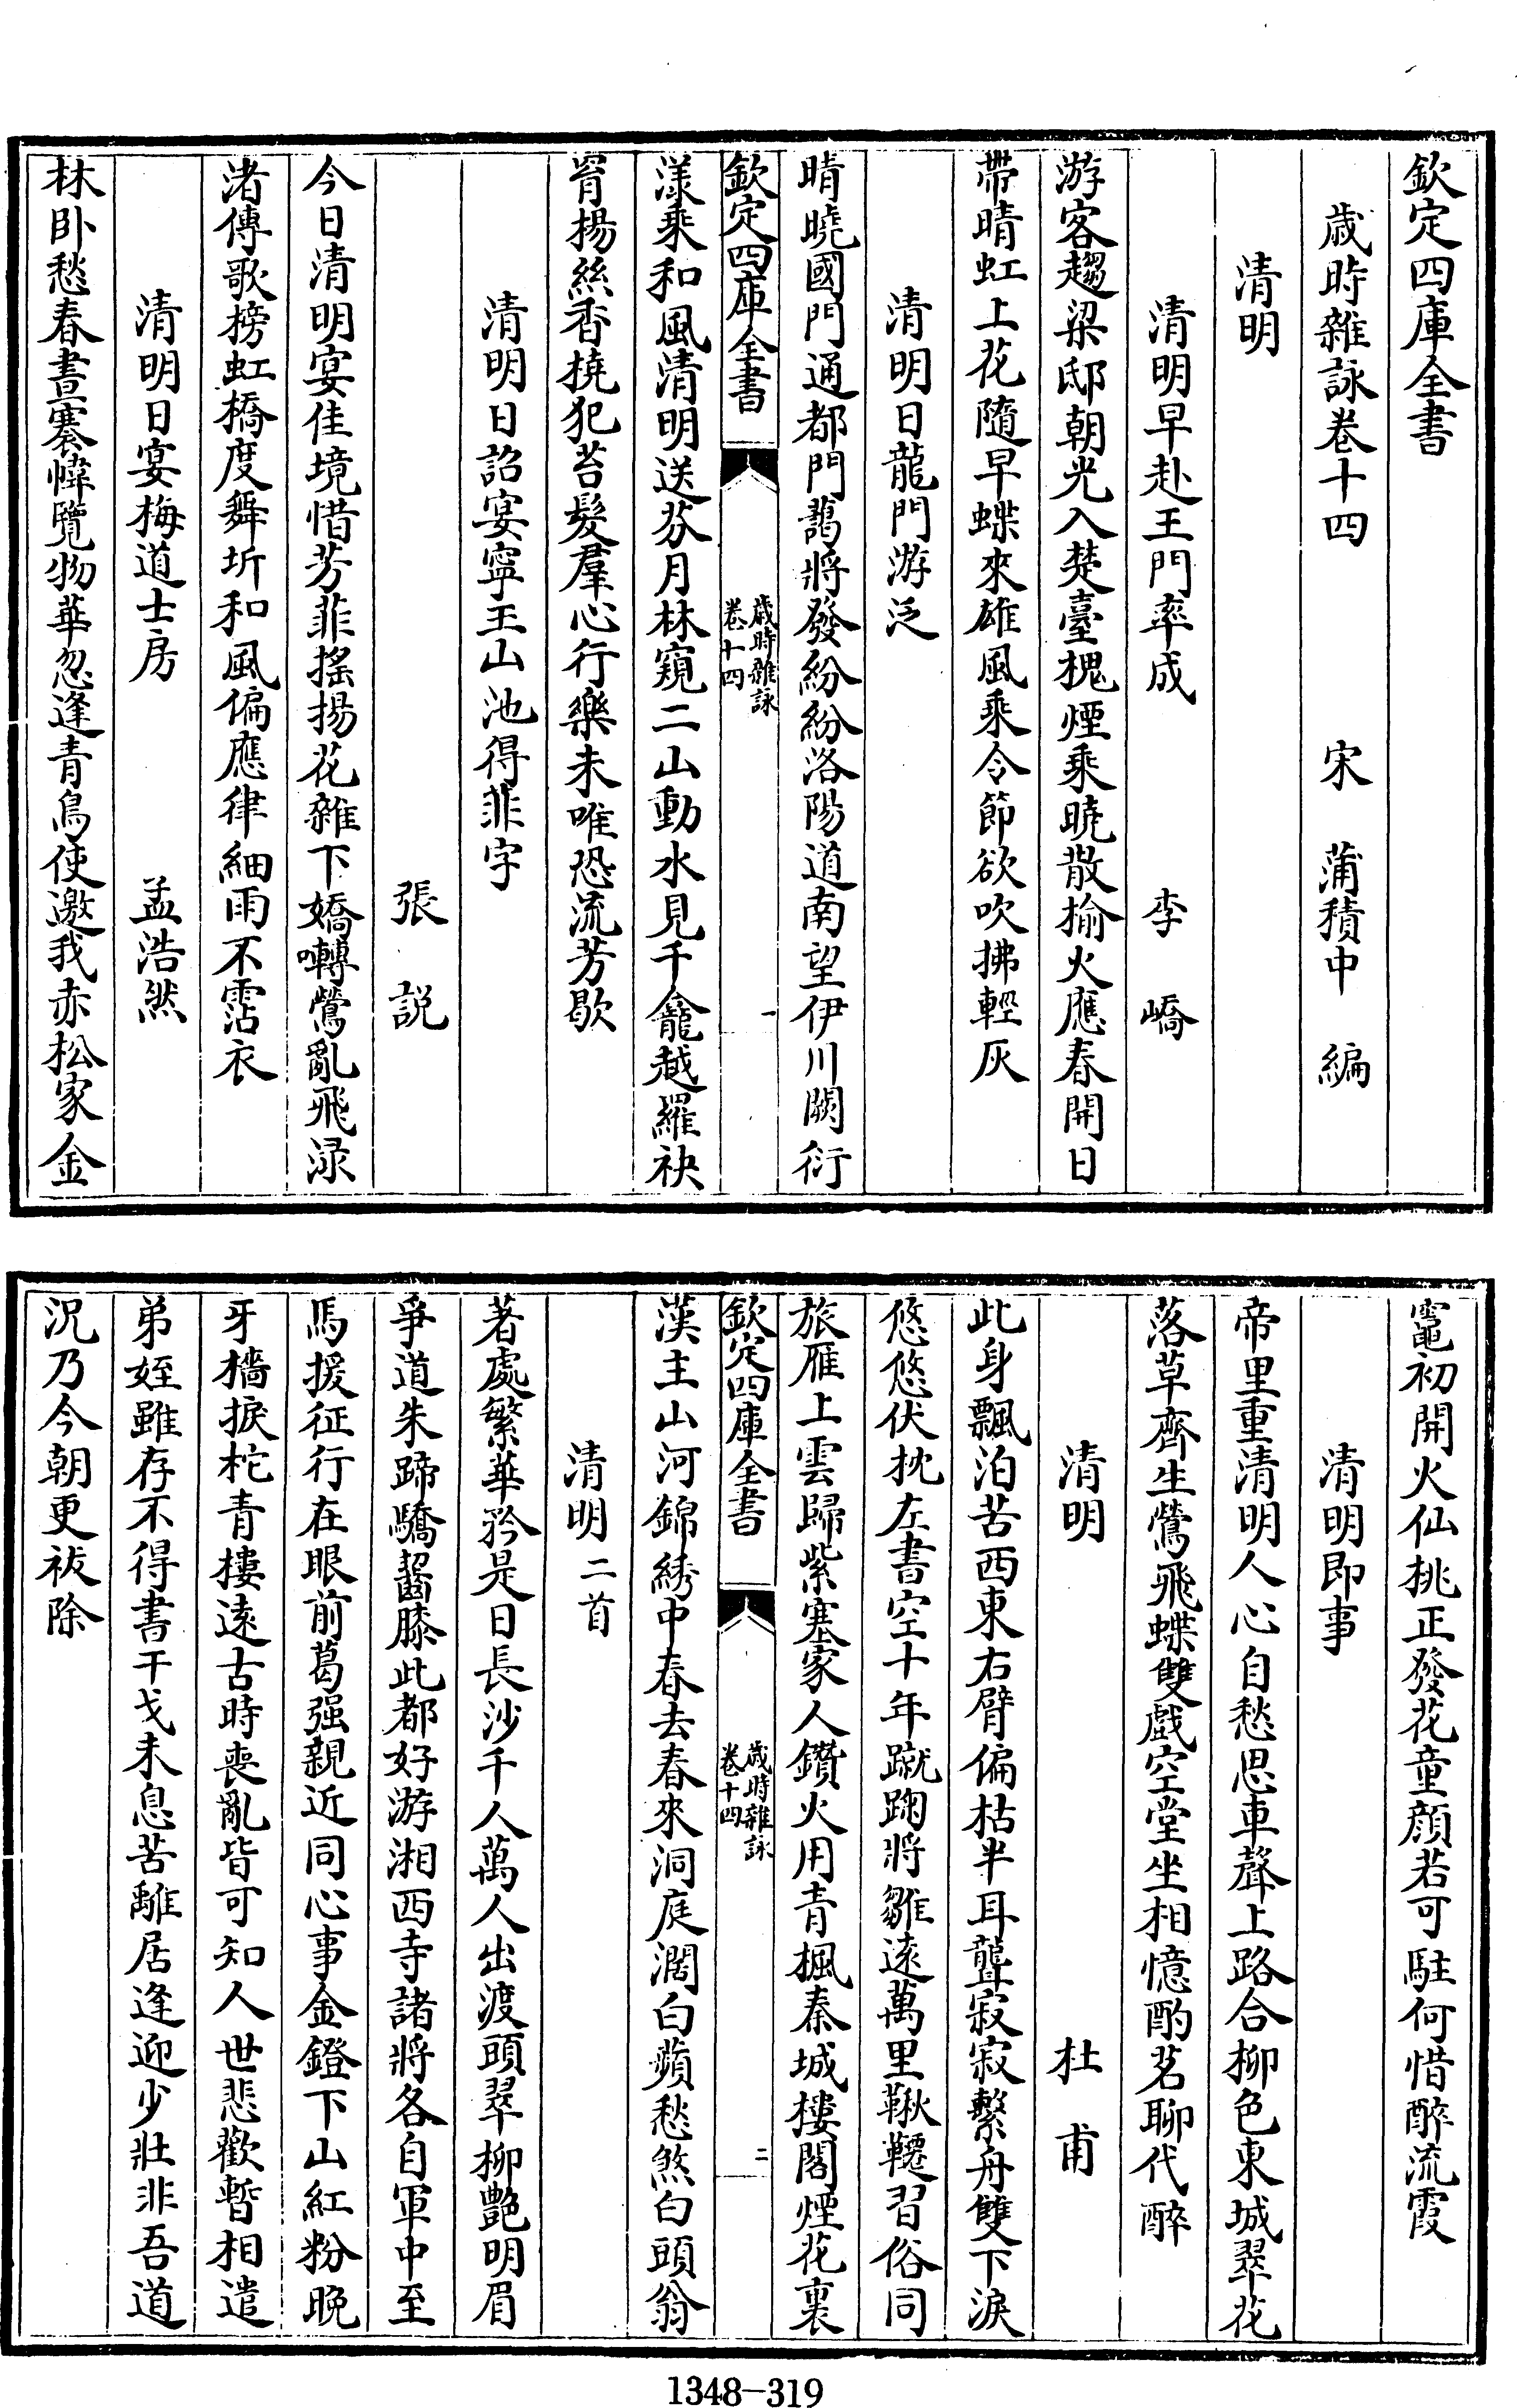 欽定四庫全書
歲時雜詠卷十四 宋 蒲積中 編
清明
清明早赴王門率成 李嶠
游客趨梁邸朝光入楚臺槐煙乘曉散榆火應春開日
帶晴虹上花隨早蝶來雄風乘令節欲吹拂輕灰
清明日龍門游泛
晴曉國門通都門藹將發紛紛洛陽道南望伊川闕衍
欽定四庫全書 歲時雜詠 卷十四 一
漾乘和風清明送芬月林窺二山動水見千龕越羅袂
罥揚絲香橈犯苔髮羣心行樂未唯恐流芳歇
清明日詔宴寧王山池得菲字
張說
今日清明宴佳境惜芳菲搖揚花雜下嬌囀鶯亂飛渌
渚傳歌榜虹橋度舞圻和風偏應律細雨不霑衣
清明日宴梅道士房 孟浩然
林卧愁春晝褰幃覽物華忽逢青鳥使邀我赤松家金
竈初開火仙桃正發花童顏若可駐何惜醉流霞
清明即事
帝里重清明人心自愁思車聲上路合柳色東城翠花
落草齊生鶯飛蝶雙戲空堂坐相憶酌茗聊代醉
清明 杜甫
此身飄泊苦西東右臂偏枯半耳聾寂寂繫舟雙下淚
悠悠伏枕左書空十年蹴踘將雛遠萬里鞦韆習俗同
旅雁上雲歸紫塞家人鑽火用青楓秦城樓閣煙花裏
欽定四庫全書 歲時雜詠 卷十四 二
漢主山河錦綉中春去春來洞庭濶白蘋愁煞白頭翁
清明二首
著處繁華矜是日長沙千人萬人出渡頭翠柳艷明眉
爭道朱蹄驕齧膝此都好游湘西寺諸將各自軍中至
馬援征行在眼前葛强親近同心事金鐙下山紅粉晚
牙檣捩柁青樓遠古時喪亂皆可知人世悲歡暫相遣
弟姪雖存不得書干戈未息苦離居逢迎少壯非吾道
況乃今朝更祓除
1348-319